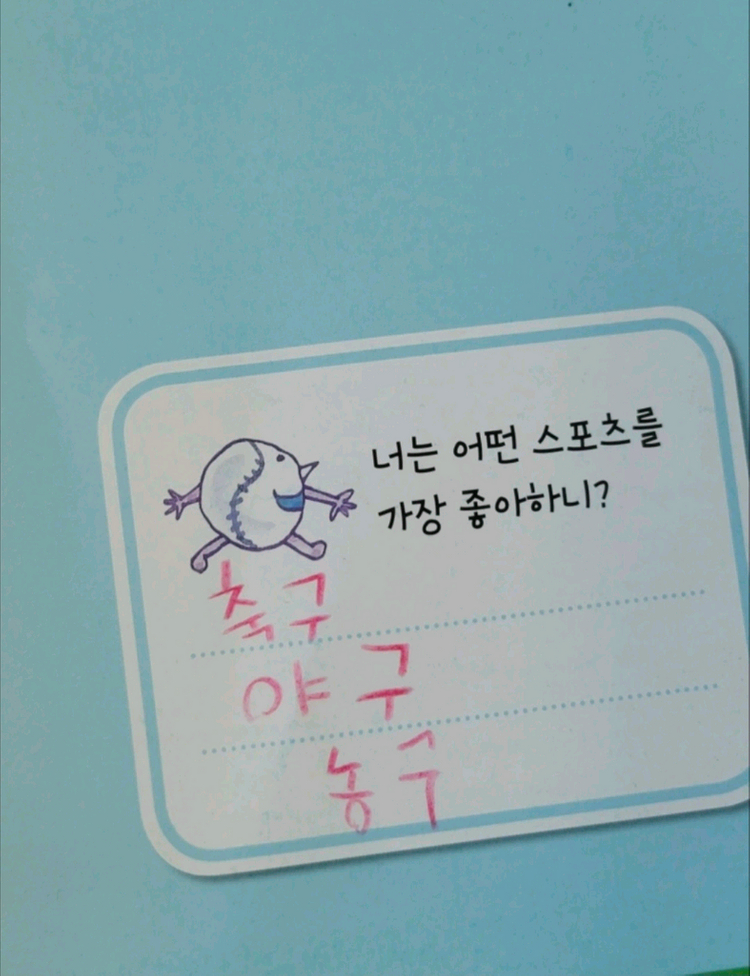 너는 어떤 스포츠를
가장 좋아하니?
축구
야구
농구